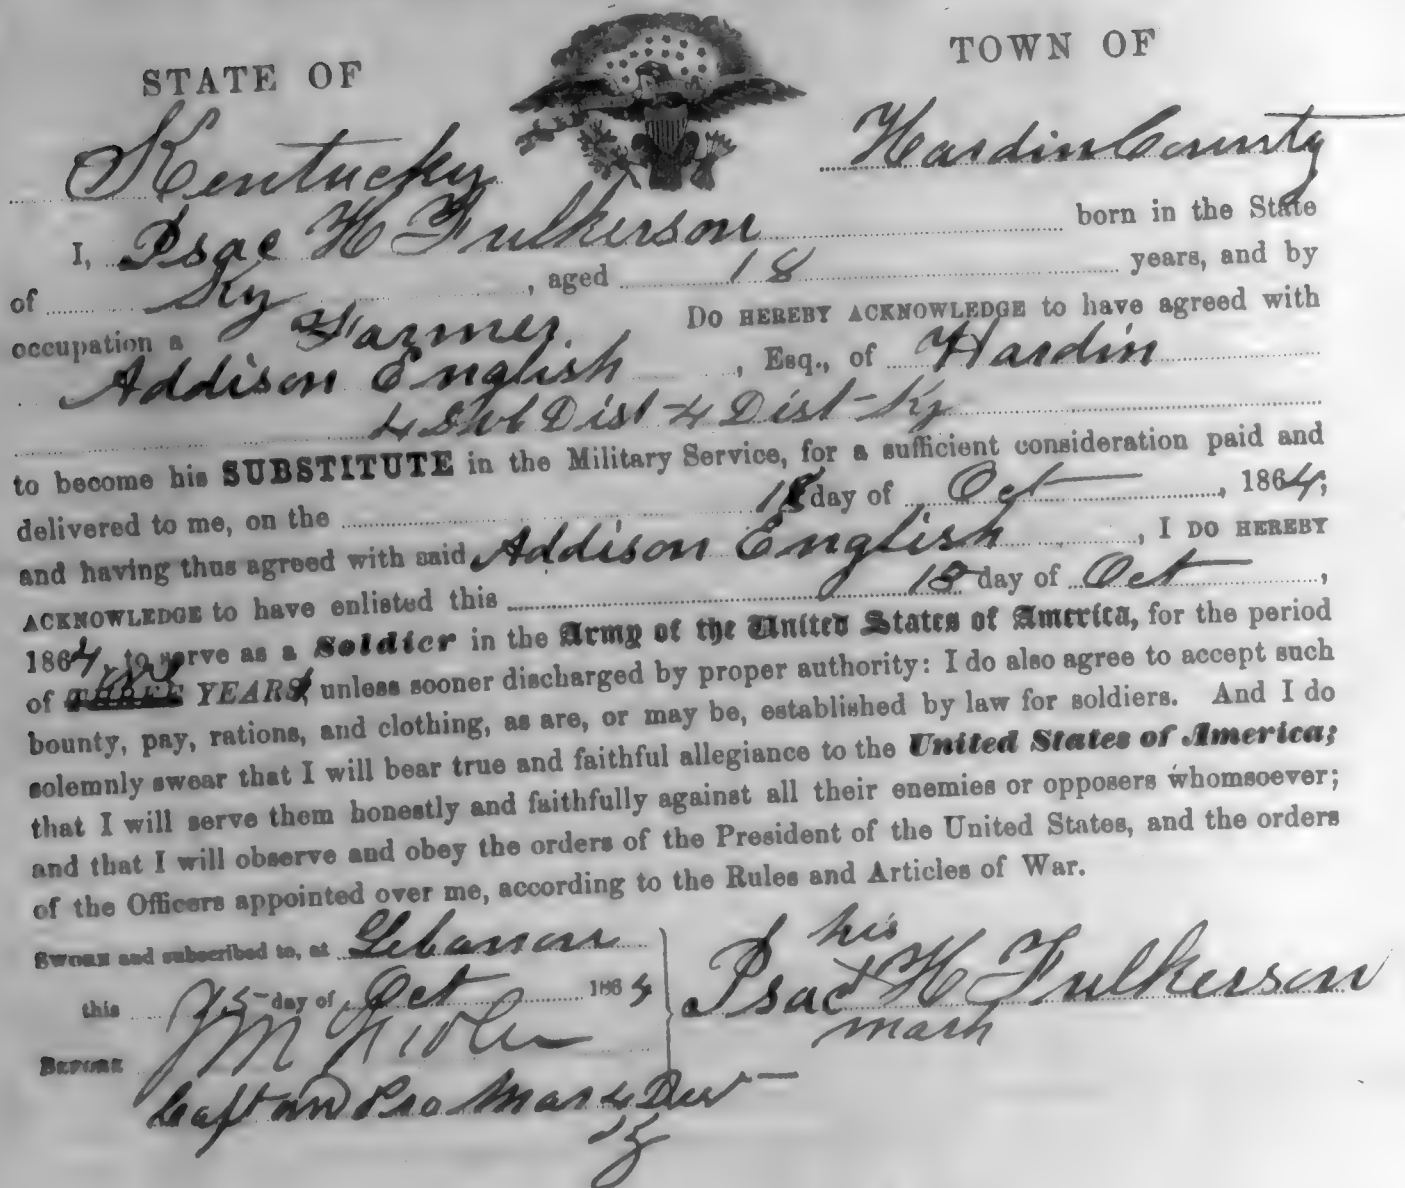 STATE OF
TOWN OF
Kentucky
Hardin County
I, Isac H Fulkerson born in the State
of Ky, aged 18 years, and by
occupation a Farmer DO HEREBY ACKNOWLEDGE to have agreed with
Addison English, Esq., of Hardin
4 Sub Dist 4 Dist Ky
to become his SUBSTITUTE in the Military Service, for a sufficient consideration paid and
delivered to me, on the day of Oct, 1864;
and having thus agreed with said Addison English, I DO HEREBY
ACKNOWLEDGE to have enlisted this day of Oct,
1864, to serve as a Soldier in the Army of the United States of America, for the period
of YEAR, unless sooner discharged by proper authority: I do also agree to accept such
bounty, pay, rations, and clothing, as are, or may be, established by law for soldiers. And I do
solemnly swear that I will bear true and faithful allegiance to the United States of America;
that I will serve them honestly and faithfully against all their enemies or opposers whomsoever;
and that I will observe and obey the orders of the President of the United States, and the orders
of the Officers appointed over me, according to the Rules and Articles of War.
Sworn and subscribed to, at Lebanon
this day of Oct 1864
BEFORE
his
Isac H Fulkerson
mark
Capt and Pro Mar 4 Dist
Ky